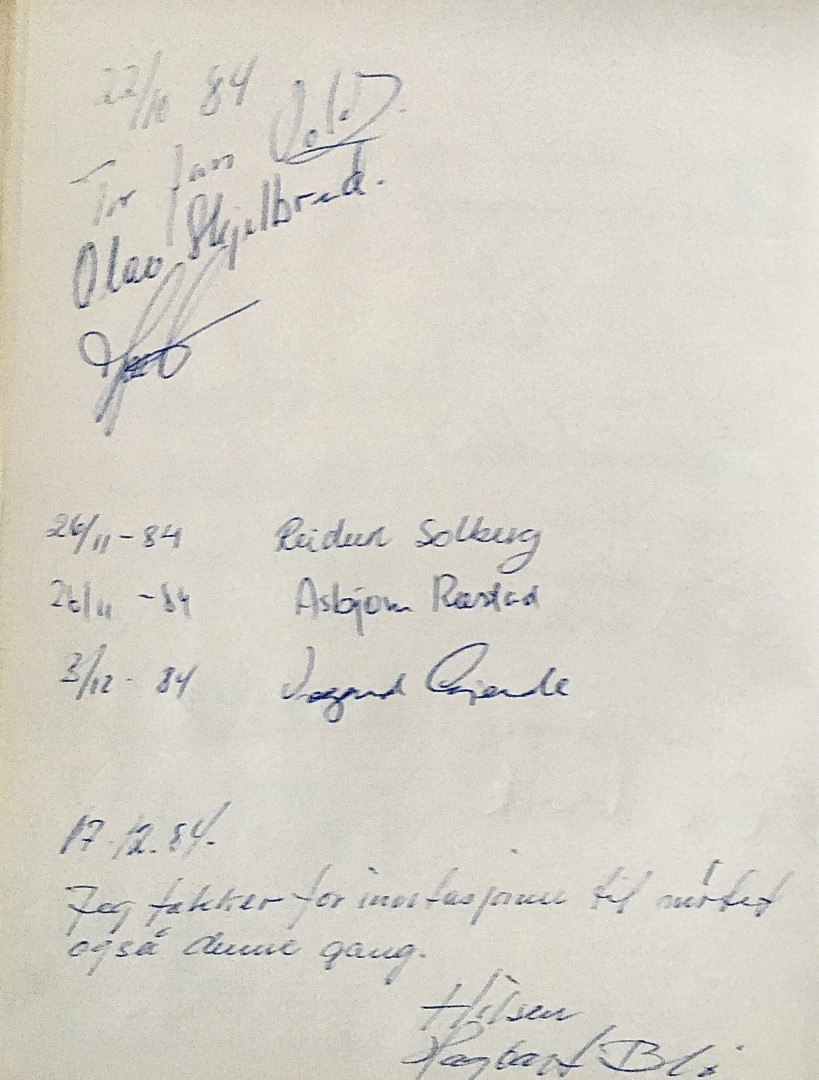 22/10 84
Tor Jan Vold.
Olav Skjelbred.
26/11 - 84 Reidun Solberg
26/11 - 84 Asbjørn Rustad
3/12 - 84
17.12.84.
Jeg takker for invitasjonen til møtet
også denne gang.
Hilsen
Hagbart